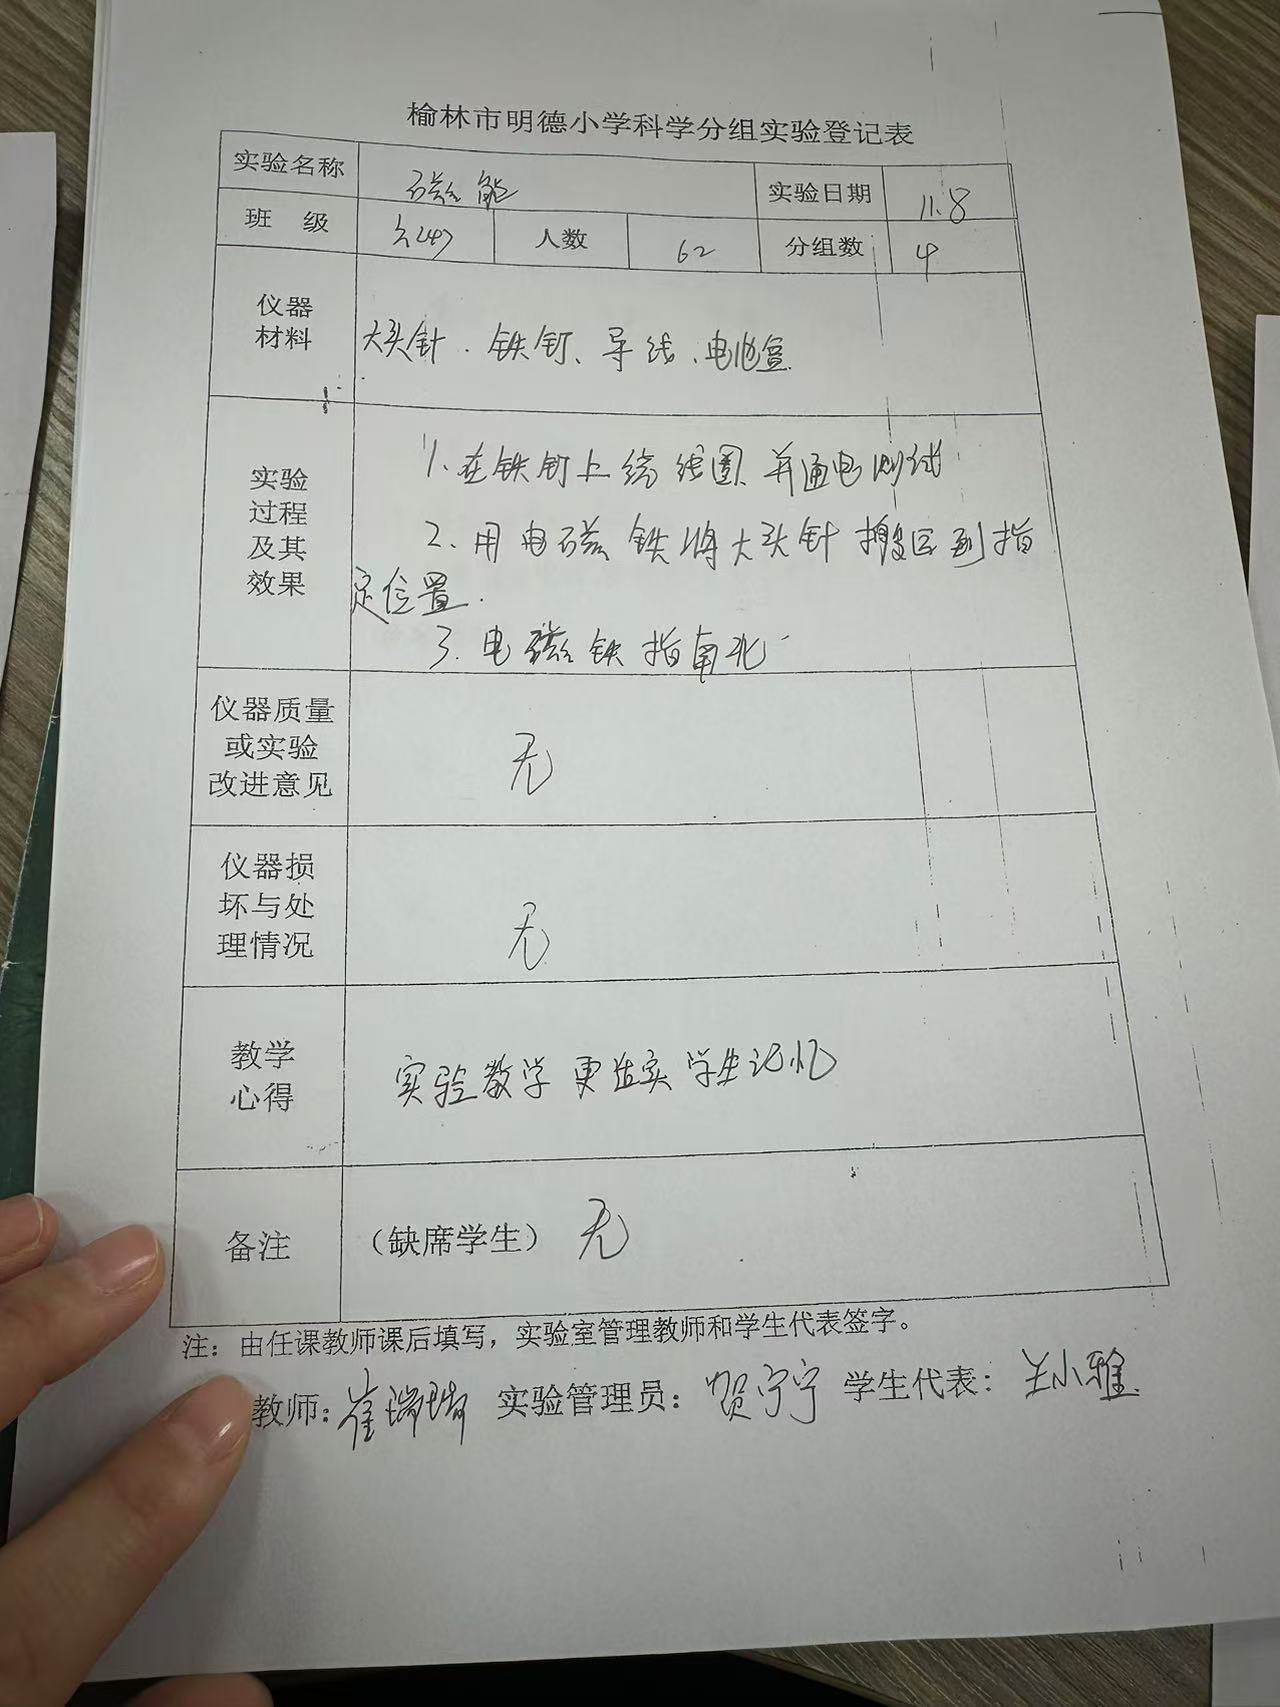 榆林市明德小学科学分组实验登记表
实验名称 磁能 实验日期 11.8
班 级 六(4) 人数 62 分组数 4
仪器
材料
大头针、铁钉、导线、电池盒
实验
过程
及其
效果
1.在铁钉上绕线圈并通电测试
2.用电磁铁将大头针搬运到指
定位置.
3.电磁铁指南北
仪器质量
或实验
改进意见
无
仪器损
坏与处
理情况
无
教学
心得
实验教学更 实学生记忆
备注 (缺席学生) 无
注：由任课教师课后填写，实验室管理教师和学生代表签字。
教师: 崔瑞瑞 实验管理员: 贺宁宁 学生代表: 王小雅